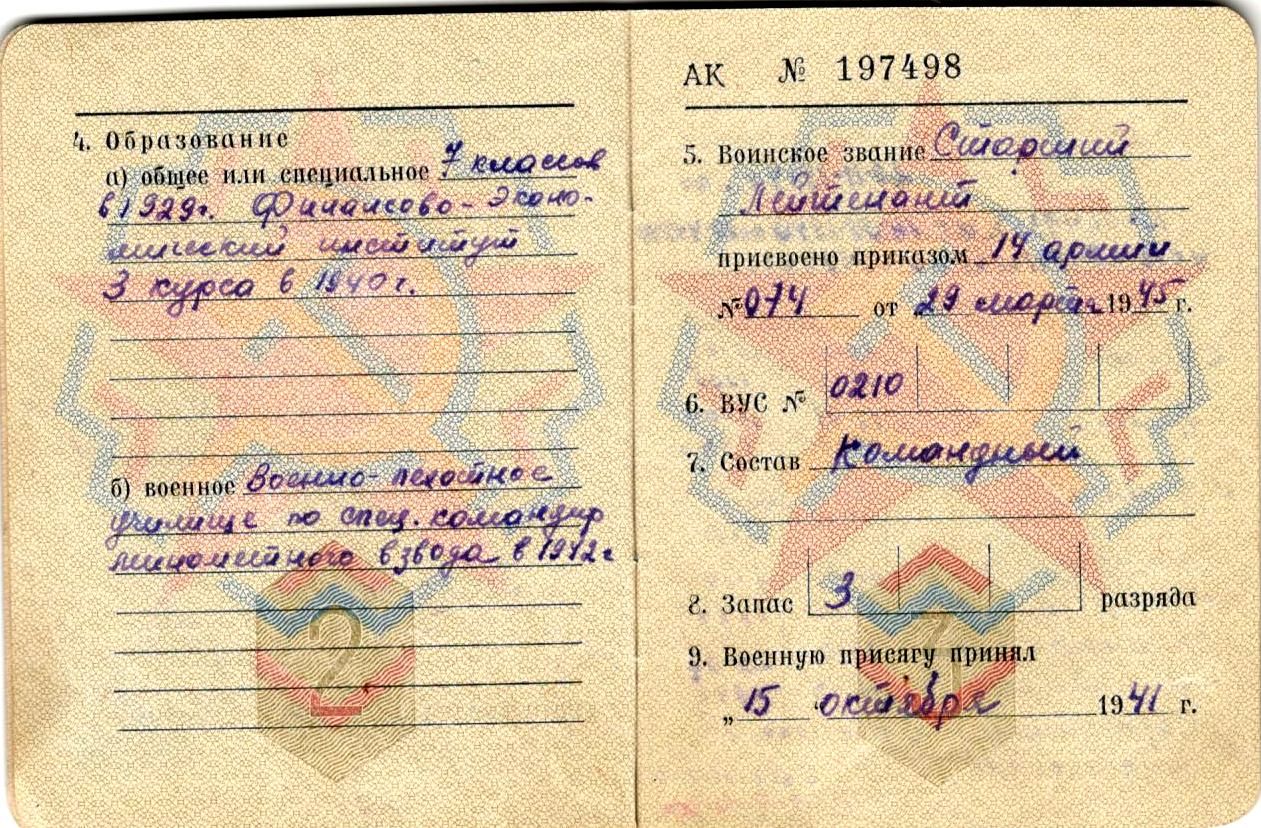 4. Образование
а) общее или специальное 7 классов
в 1929г. Финансово-Эконо-
мический институт
3 курса в 1940 г.
б) военное Военно-пехотное
училище по спец. командир
минометного взвода в 1942 г
2
АК № 197498
5. Воинское звание Старший
Лейтенант
присвоено приказом 14 армии
№ 074 от 29 марта 1945 г.
6. ВУС № 0210
7. Состав Командный
8. Запас 3 разряда
9. Военную присягу принял
„15 “ октября 1941 г.